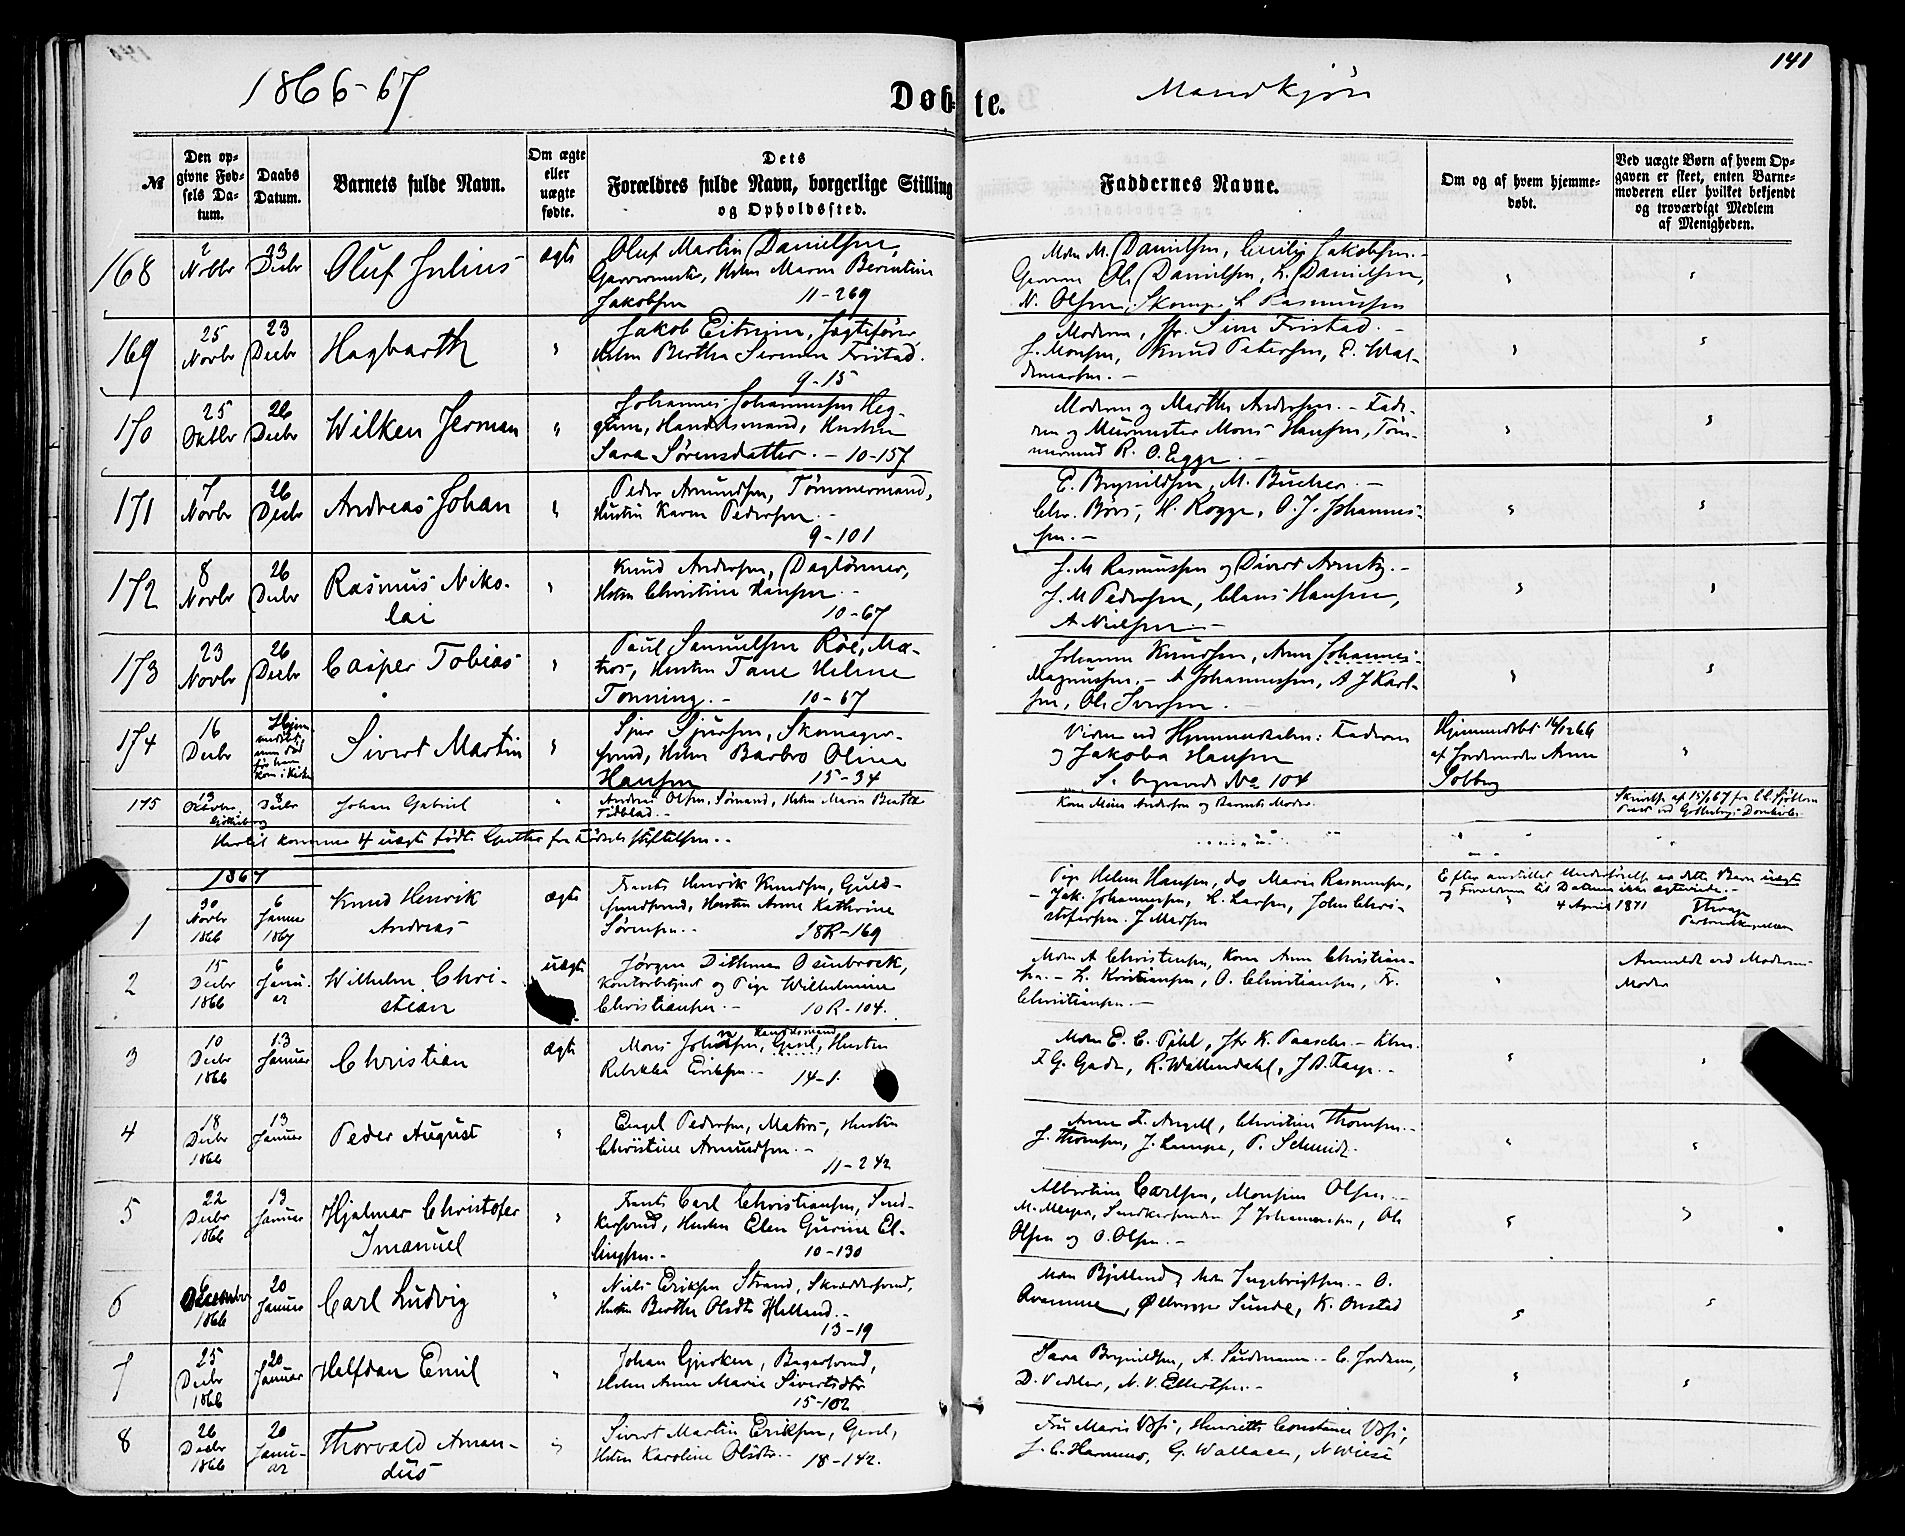 141
1866-67
Døbte.
Mandkjøn
№
Den opgivne Fødsels Datum.
Daabs Datum.
Barnets fulde Navn.
Om ægte eller uægte fødte.
Dets Forældres fulde Navn, borgerlige Stilling og Opholdssted.
Faddernes Navne.
Om og af hvem hjemmedøbt.
Ved uægte Børn af hvem Opgaven er skeet, enten Barnemoderen eller hvilket bekjendt og troværdigt Medlem af Menigheden.
168
2 Novbr
23 Decbr
Oluf Julius
ægte
Oluf Martin Danielsen,
Garvermester, Hustru Maren Berntine
Jakobsen 11-269
Mdm M. Danielsen, Cecilie Jakobsen.-
Garver Ole Danielsen, L. Danielsen,
N. Olsen, Skomager L Rasmussen
169
25 Novbr
23 Decbr
Hagbarth
Jakob Eitrem, Jægtefører,
Hustru Berthe Serine Fristad.
9-15
Moderen, Jfr. Sine Fristad.-
J. Monsen, Knud Petersen, E. Waldemarsen.-
170
25 Oktbr
26 Decbr
Wilken Jerman
Johannes Johannessen Heggum, Handelsmand, Hustru
Sara Sørensdatter.- 10-157
Moderen og Marthe Andersen.- Faderen og Murmester Mons Hansen, Tømmermand R. O. Egge.-
171
7 Novbr
26 Decbr
Andreas Johan
Peder Amundsen, Tømmermand,
Hustru Karen Pedersen.-
9-101
E. Brynildsen, M. Bucher.-
Chr. Børs, H. Rogge, O. J. Johannessen.-
172
8 Novbr
26 Decbr
Rasmus Nikolai
Knud Andersen, Daglønner,
Hustru Christine Hansen.-
10-67
J. M Rasmussen og Divert
J. M Pedersen, Claus Hansen,
A Nielsen.-
173
23 Novbr
26 Decbr
Casper Tobias
Paul Samuelsen Röe, Matros, Hustru Tane Helene
Tonning.- 10-67
Johanne Knudsen, Anne Johannes-
Magnussen.- A Johannessen, A J Karlsen, Ole Iversen.
174
16 Decbr
Sivert Martin
Sjur Sjursen, Skomagersvend, Hustru Barbro Oline
Hansen 15-34
Vidner ved Hjemmedaaben: Faderen
og Jakoba Hansen
S. begravede No 104
Hjemmedøbt 16/12 66
af Jordemoder Anne
Solberg
175
13 Oktober
Gøtheborg
8 Decbr
Johan Gabriel
Andreas Olsen, Sømand, Hustru Maria Beata
Tidblad.-
Kone Maria Andersen og Barnets Moder.
Skrivelse af 15/1 67 fra
Gøtheborgs Domkirke
Hertil kommer 4 uægte fødte Gutter fra Fødselsstiftelsen.-
1867
1
30 Novbr 1866
6 Januar 1867
Knud Henrik
Andreas
ægte
Frants Henrik Knudsen, Guldsmedsvend, Hustru Anne Kathrine
Sørensen.- 18R-169
Pige Helene Hansen, do Marie Rasmussen,
- Jak. Johannesen, L. Larsen, John Christofersen. J Madsen
Efter anstillet Undersøgelse er dette Barn uægte
og Forældrene til Datum ikke ægteviede.-
4 April 1871
2
15 Decbr 1866
6 Januar
Wilhelm Christian
uægte
Jørgen Dithmer Osenbroek,
Kontorbetjent og Pige Wilhelmine
Christiansen.- 10R-104.
Mdm A Christensen, Kone Anne Christiansen.- L. Kristiansen, O. Christiansen, Fr.
Christiansen.-
Anmeldt ved Moderens
Moder
3
10 Decbr 1866
13 Januar
Christian
ægte
Mons Johnsen, Handelsmand, Hustru
Rebekka Eriksen.- 14-1.
Mdm E. C. Pihl, Jfr K. Paasche.- Kbm.
F. G. Gade, R. Wallendahl, J. D.
4
18 Decbr 1866
13 Januar
Peder August
Engel Pedersen, Matros, Hustru
Christine Amundsen.-
11-242
Anne F. Angell, Christine Thomsen.-
J. Thomsen, J. Lampe, P. Schmidt.
5
22 Decbr 1866
13 Januar
Hjalmar Christofer
Imanuel
Frants Carl Christiansen, Snedkersvend, Hustru Elen Gurine Ellingsen.- 10-130
Albertine Carlsen, Monsine Olsen.-
M. Meyer, Snedkersvende J Johannesen, Ole
Olsen og O. Olsen.-
6
6 December 1866
20 Januar
Carl Ludvig
Niels Eriksen Strand, Skræddersvend,
Hustru Berthe Olsdtr Helland.-
13-19
Mdm Bjelland, Mdm Ingebrigtsen.- O.
Qvamme, Ølbrygger Sunde, K. Onstad
7
25 Decbr 1866
20 Januar
Halfdan Emil
Johan Gjerken, Bagersvend,
Hustru Anne Marie Sivertsdtr
15-102
Sara Brynildsen, A. Sudmann.- C. Jordan,
D. Vedeler, N. V. Ellertsen.-
8
26 Decbr 1866
20 Januar
Thorvald Amandus
Sivert Martin Eriksen, Gesel,
Hustru Karoline Olsdtr.- 18-142.
Fru Marie Vosz, Henriette Constance Vosz,
J. C. Hammer, G. Wallace, N Wiese